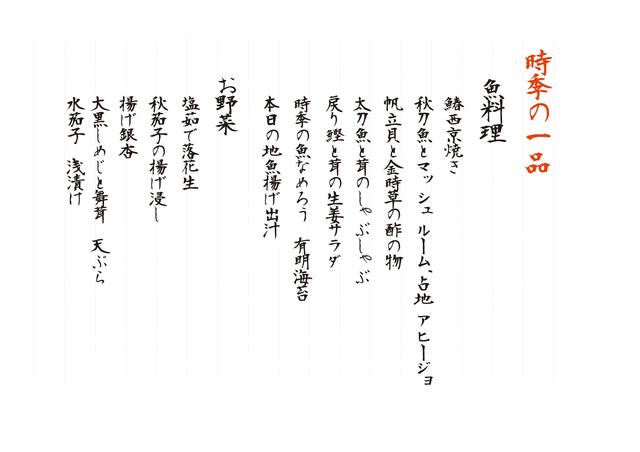 時季の一品
魚料理
鰆西京焼き
秋刀魚とマッシュルーム、占地 アヒージョ
帆立貝と金時草の酢の物
太刀魚と茸のしゃぶしゃぶ
戻り鰹と茸の生姜サラダ
時季の魚なめろう 有明海苔
本日の地魚揚げ出汁
お野菜
塩茹で落花生
秋茄子の揚げ浸し
揚げ銀杏
大黒しめじと舞茸 天ぷら
水茄子 浅漬け